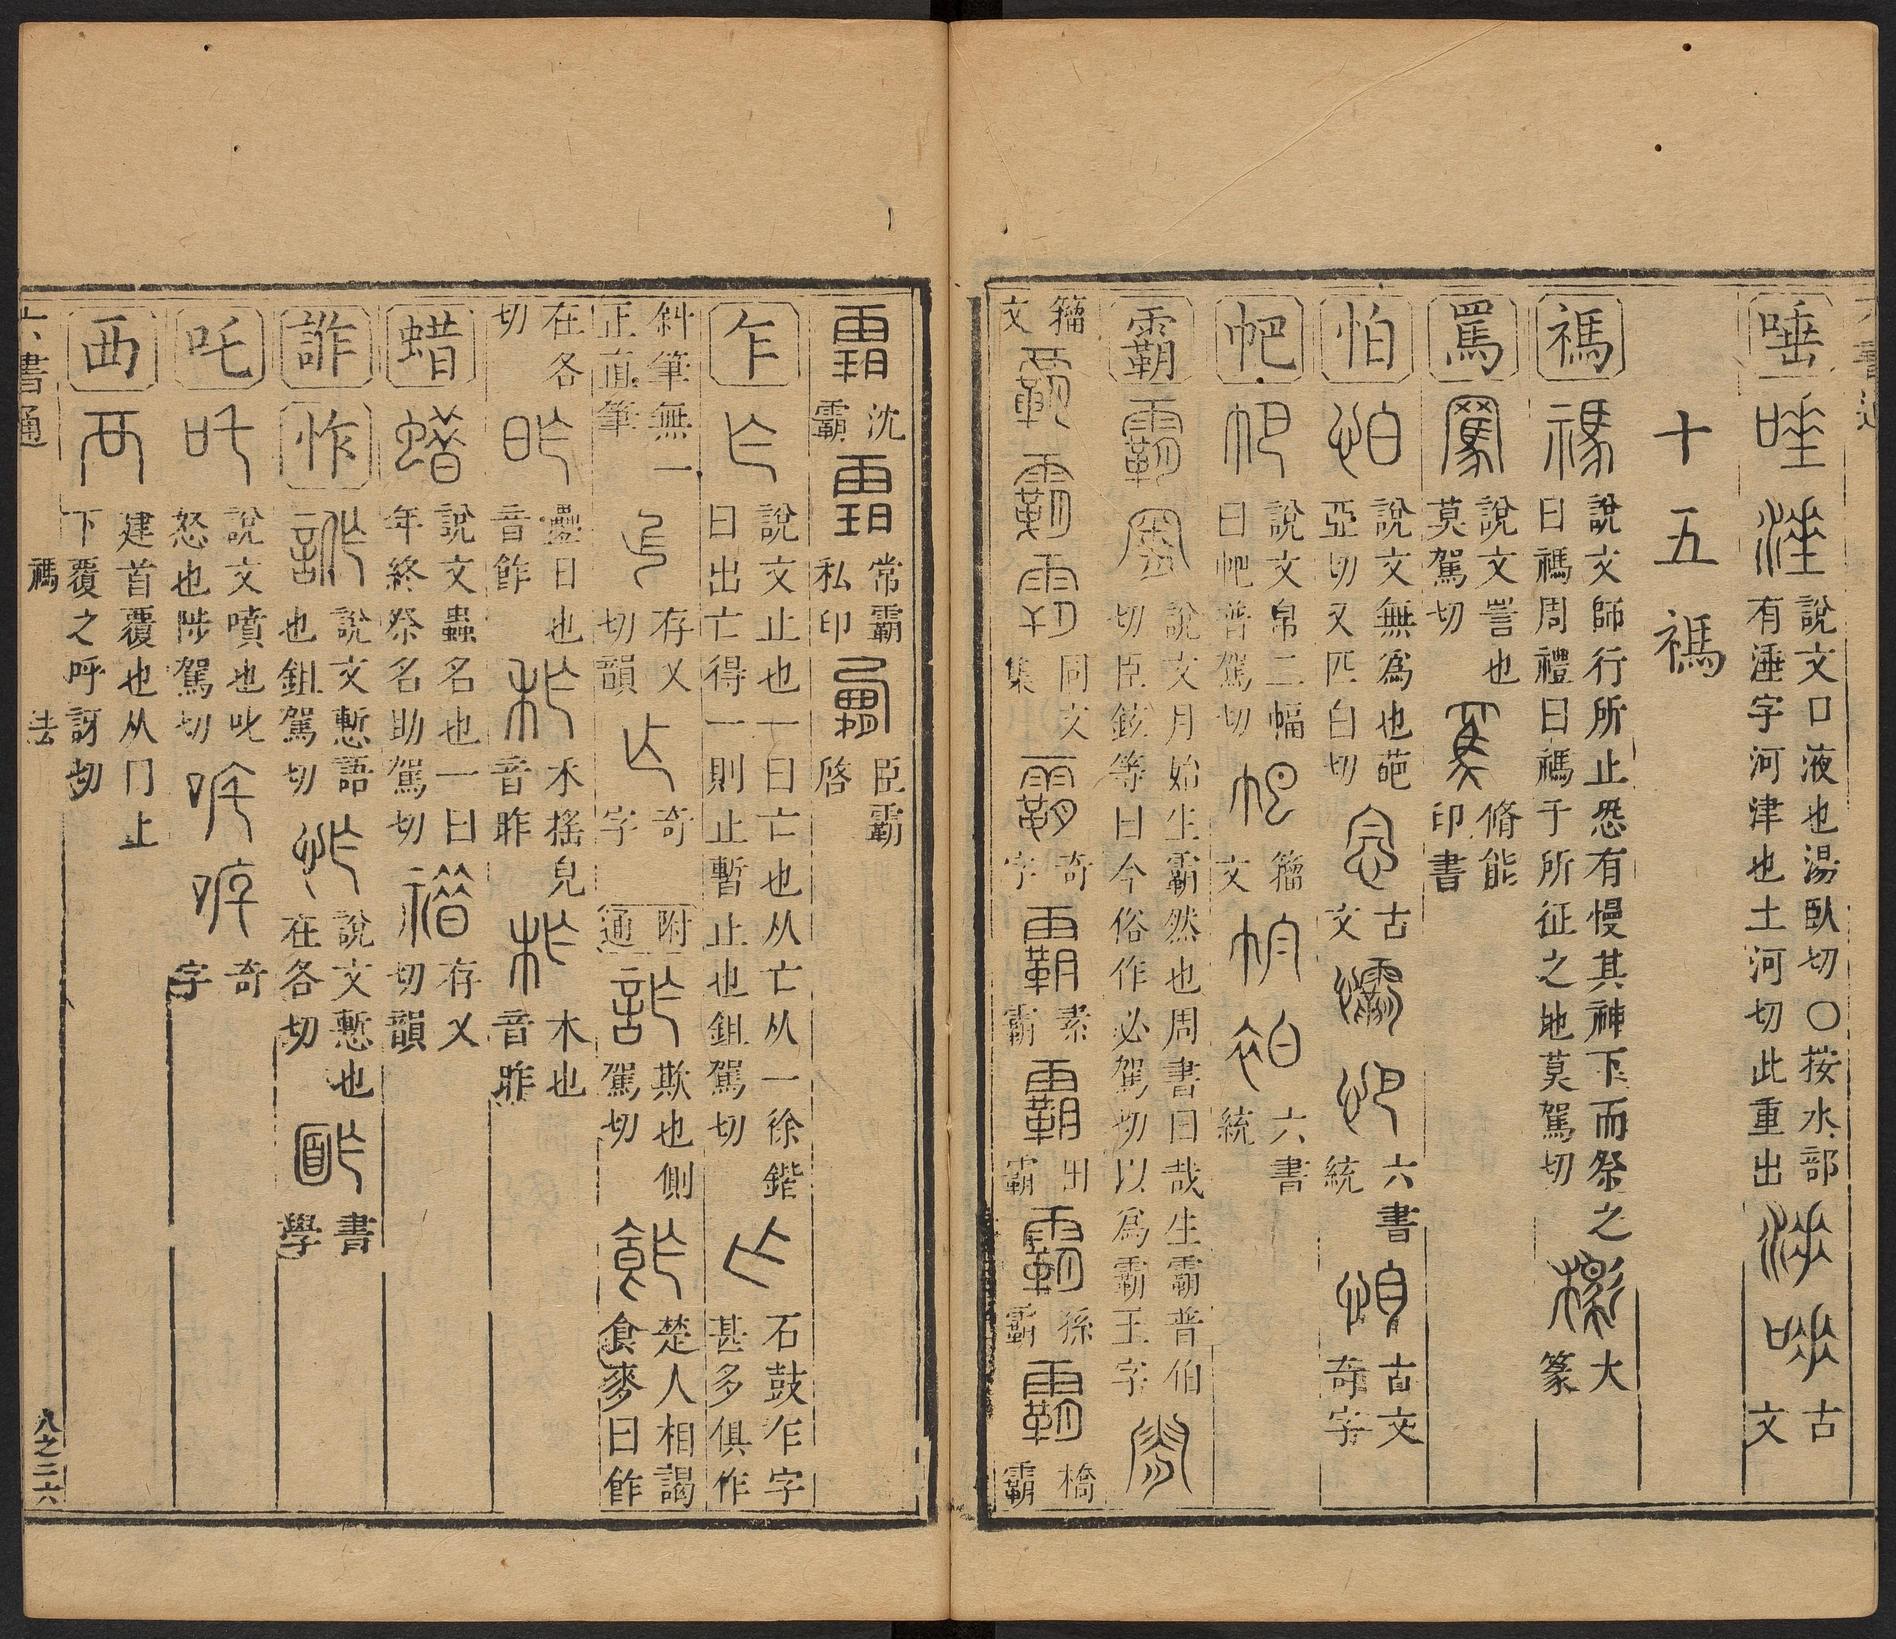 唾 說文口液也湯臥切〇按水部有涶字河津也土河切此重出 古文
十五禡
禡 說文師行所止恐有慢其神下而祭之曰禡周禮曰禡于所征之地莫駕切 大篆
罵 說文詈也莫駕切 脩能印書
怕 說文無爲也葩亞切又匹白切 古文 六書統 古文奇字
帊 說文帛二幅曰帊普駕切 籀文 六書統
霸 說文月始生霸然也周書曰哉生霸普伯切臣鉉等曰今俗作必駕切以爲霸王字
籀文 同文集 奇字 素霸 田霸 孫霸 橋霸
沈霸 常霸私印 臣霸 啓
乍 說文止也一曰亡也从亡从一徐鍇曰出亡得一則止暫止也鉏駕切 石鼓乍字甚多俱作
斜筆無一正直筆 存乂切韻 奇字 附通 欺也側駕切 楚人相謁食麥曰飵
在各切 疊日也音飵 禾搖皃音昨 木也音昨
蜡 說文蟲名也一曰年終祭名助駕切 存乂切韻
詐 怍 說文慙語也鉏駕切 說文慙也在各切 書學
吒 說文噴也叱怒也陟駕切 奇字
建首覆也从冂上
襾 下覆之呼訝切
六書通 禡 法 八之二六